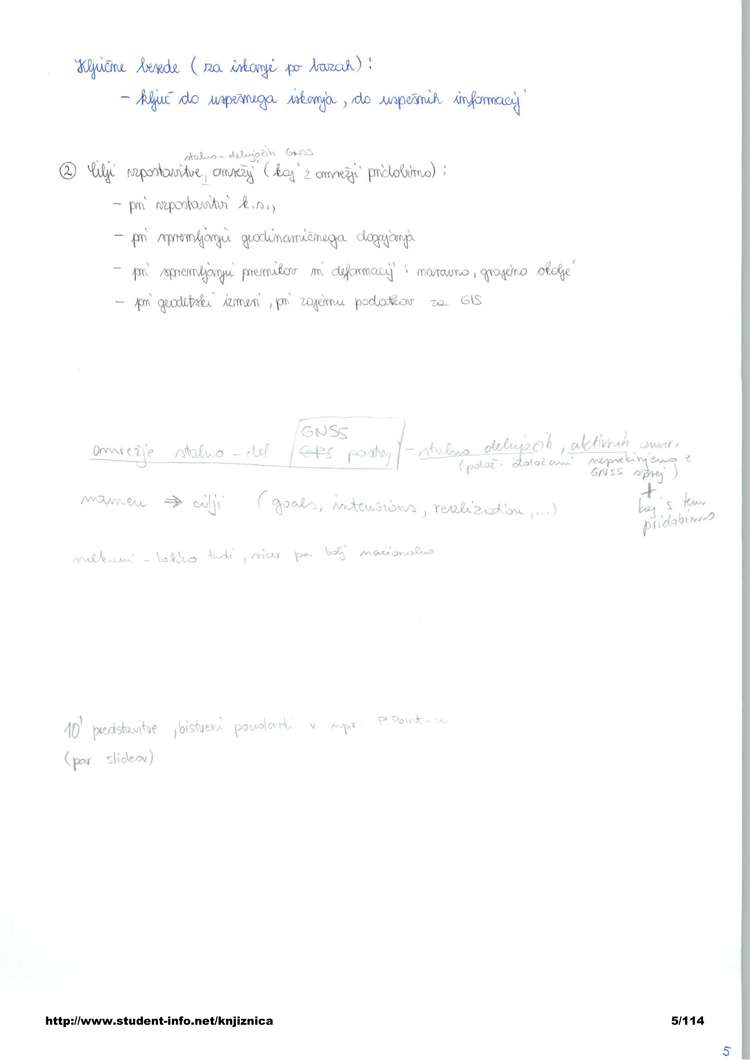 Ključne besede (za iskanje po bazah):
– ključ do uspešnega iskanja, do uspešnih informacij
stalno-delujočih GNSS
② Cilji vzpostavitve, omrežij (kaj z omrežji pridobimo):
– pri vzpostavitvi k.s.,
– pri spremljanju geodinamičnega dogajanja
– pri spremljanju premikov in deformacij: naravno, grajeno okolje
– pri geodetski izmeri, pri zajemu podatkov za GIS
GNSS
omrežje stalno-del GPS postaj – stalno delujočih, aktivnih omr.
(polož. določeni neprekinjeno z
GNSS sprej)
+
kaj s tem
pridobimo
namen ⇒ cilji (goals, intensions, realization, ...)
– lahko tudi, sicer pa bolj nacionalno
10' predstavitve, bistveni poudarki v npr. P.Point-u
(par slideov)
http://www.student-info.net/knjiznica 5/114
5